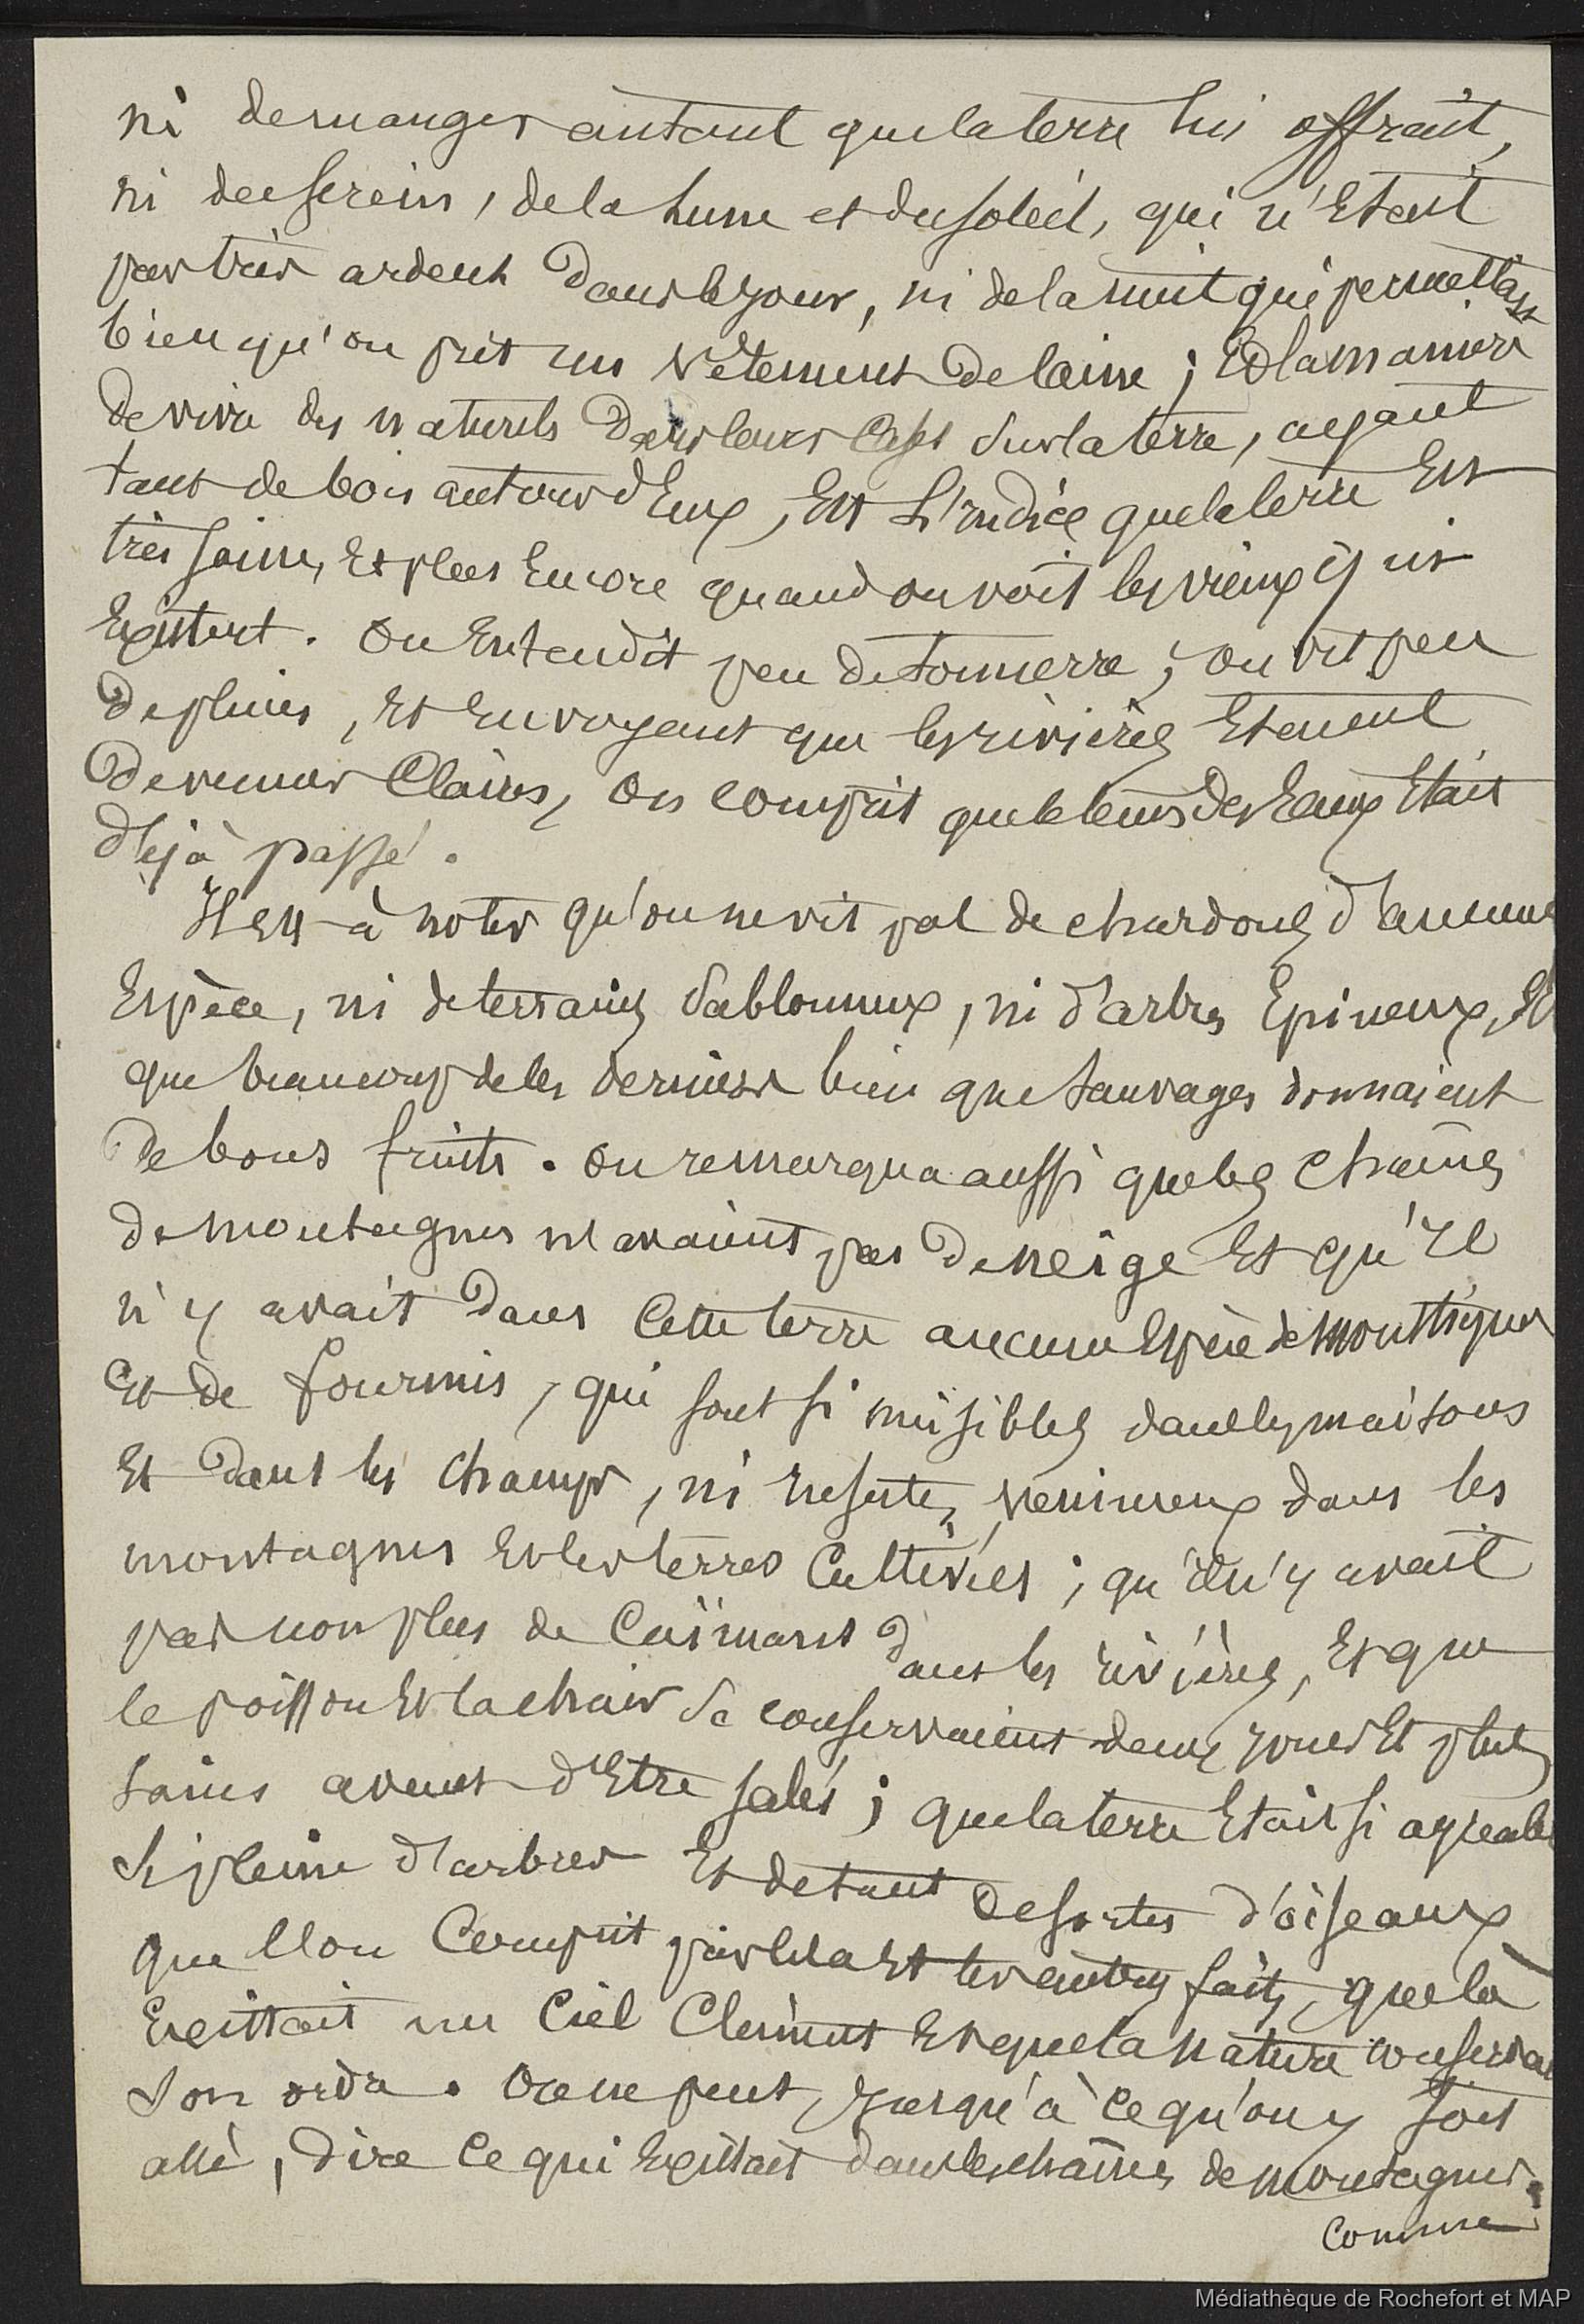 ni de manger autant que la terre lui offrait,
ni des sereins, de la lune et du soleil, qui n'était
pas très ardent dans le jour, ni de la nuit qui permettait
bien qu'on prit un vêtement de laine ; Et la manière
de vivre des naturels dans leurs cases sur la terre, ayant
tant de bois autour d'Eux, Est l'indice que la terre Est
très saine, Et plus Encore quand on voit les vieux qui
Existent. On Entendit peu de tonnerre ; on vit peu
de pluies, Et En voyant que les rivières Etaient
devenues Claires, on comprit que le tems des Eaux Etait
déjà passé.
Il Est à noter qu'on ne vit pas de chardons d'aucune
Espèce, ni de terrains sablonneux, ni d'arbres Epineux, Et
que beaucoup de ces derniers bien que sauvages donnaient
de bons fruits. On remarqua aussi que les chaînes
de montagnes n'avaient pas de neige Et qu'Il
n'y avait dans Cette terre aucune Espèce de moustiques
Et de fourmis, qui sont si nuisibles dans les maisons
Et dans les champs, ni Insectes venimeux dans les
montagnes Et les terres Cultivées ; qu'il n'y avait
pas non plus de Caïmans dans les rivières, Et que
le poisson Et la chair se conservaient deux jours Et plus
sains avant d'Etre salés ; que la terre Etait si agréable
si pleine d'arbres Et de tant de sortes d'oiseaux
que l'on Comprit par cela Et les autres faits, que là
Existait un Ciel Clément Et que la nature conservait
son ordre. On ne peut, Jusqu'à ce qu'on y soit
allé, dire Ce qui Existait dans les chaînes de montagnes.
Comme
Médiathèque de Rochefort et MAP